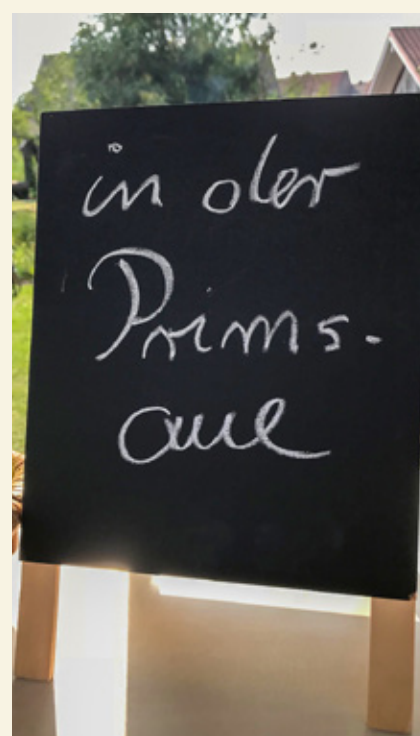 in der
Prims-
aue